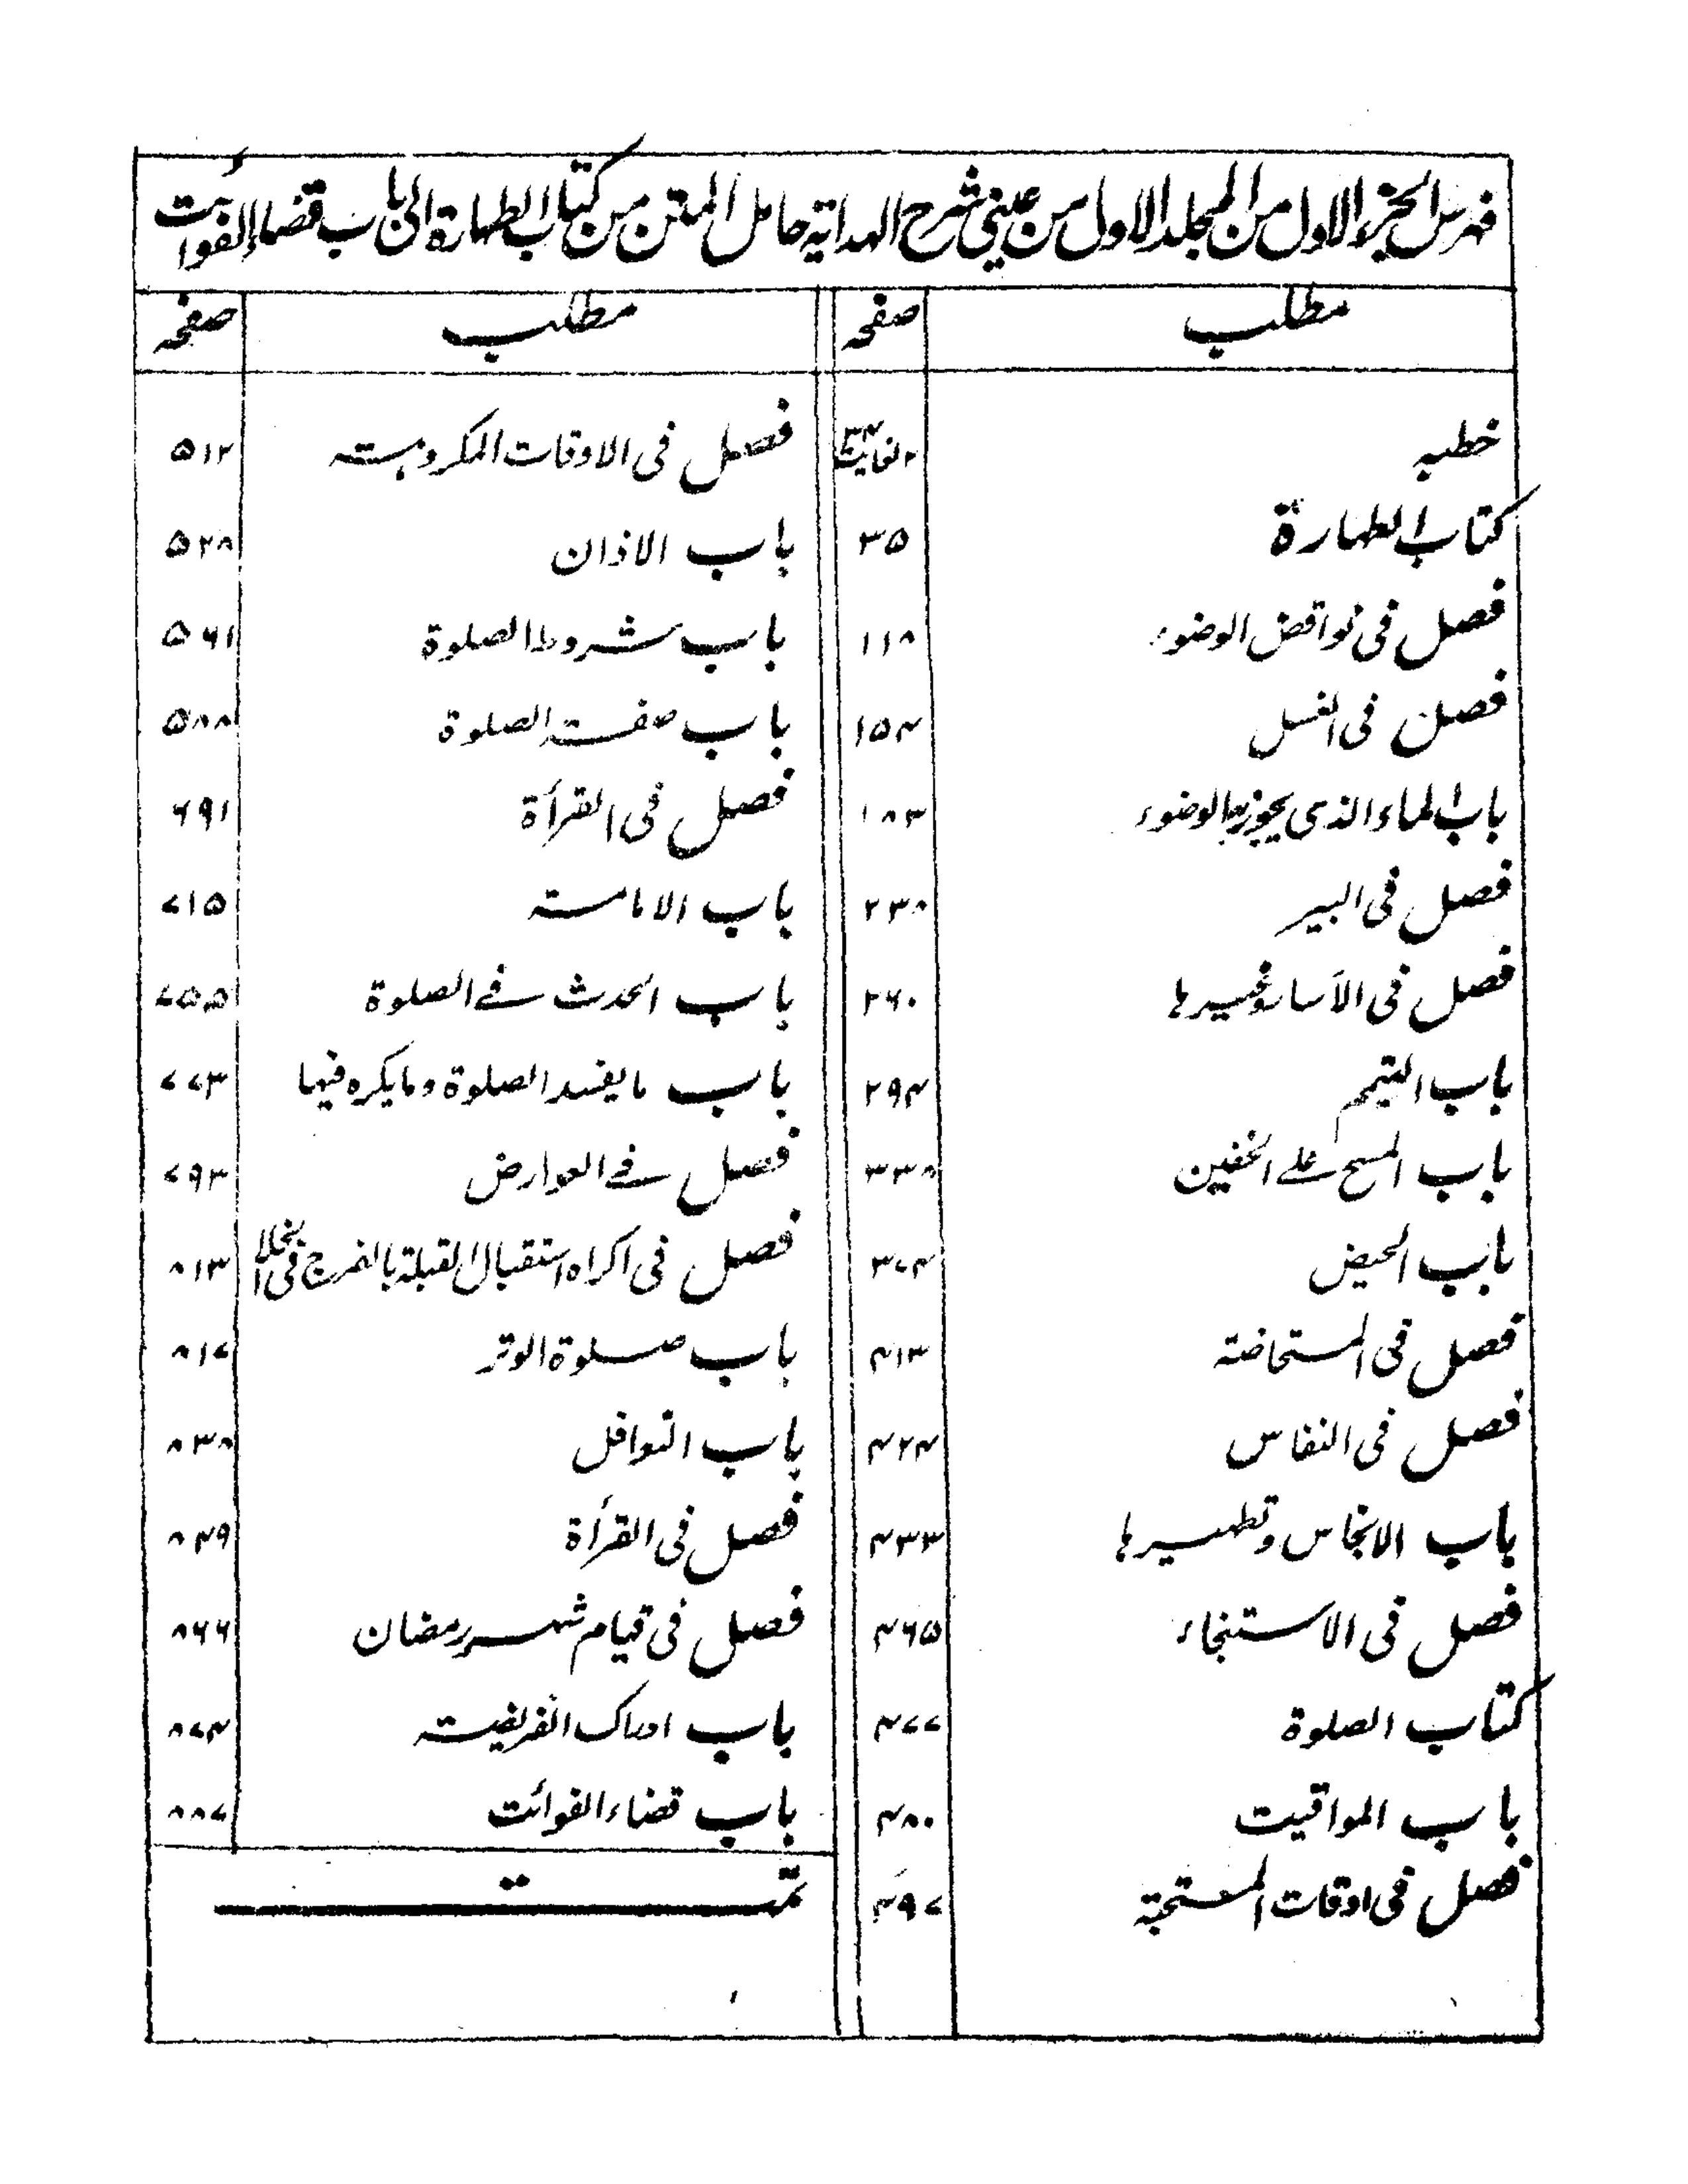 فهرس الجزء الاول من المجلد الاول من عيني شرح الهداية حامل المتن من كتاب الطهارة الى باب قضاء الفوائت
مطلب صفحه
خطبه ۲ لغایت ۳۴
كتاب الطهارة ۳۵
فصل فى نواقض الوضوء ۱۱۸
فصل فى الغسل ۱۵۴
باب الماء الذى يجوز به الوضوء ۱۸۳
فصل فى البير ۲۳۸
فصل فى الآسار وغيرها ۲۶۰
باب التيمم ۲۹۴
باب المسح على الخفين ۳۳۸
باب الحيض ۳۷۴
فصل فى المستحاضة ۴۱۳
فصل فى النفاس ۴۲۴
باب الانجاس وتطهيرها ۴۳۳
فصل فى الاستنجاء ۴۶۵
كتاب الصلوة ۴۷۷
باب المواقيت ۴۸۰
فصل فى اوقات المستحبة ۴۹۷
مطلب صفحه
فصل فى الاوقات المكروهة ۵۱۲
باب الاذان ۵۲۸
باب شروط الصلوة ۵۶۱
باب صفة الصلوة ۵۸۸
فصل فى القرأة ۶۹۱
باب الامامة ۷۱۵
باب الحدث فى الصلوة ۷۵۵
باب ما يفسد الصلوة وما يكره فيها ۷۷۳
فصل فى العوارض ۷۹۳
فصل فى اكراه استقبال القبلة بالفرج فى الخلا ۸۱۳
باب صلوة الوتر ۸۱۷
باب النوافل ۸۳۸
فصل فى القرأة ۸۴۹
فصل فى قيام شهر رمضان ۸۶۶
باب ادراك الفريضة ۸۷۴
باب قضاء الفوائت ۸۸۷
تمت